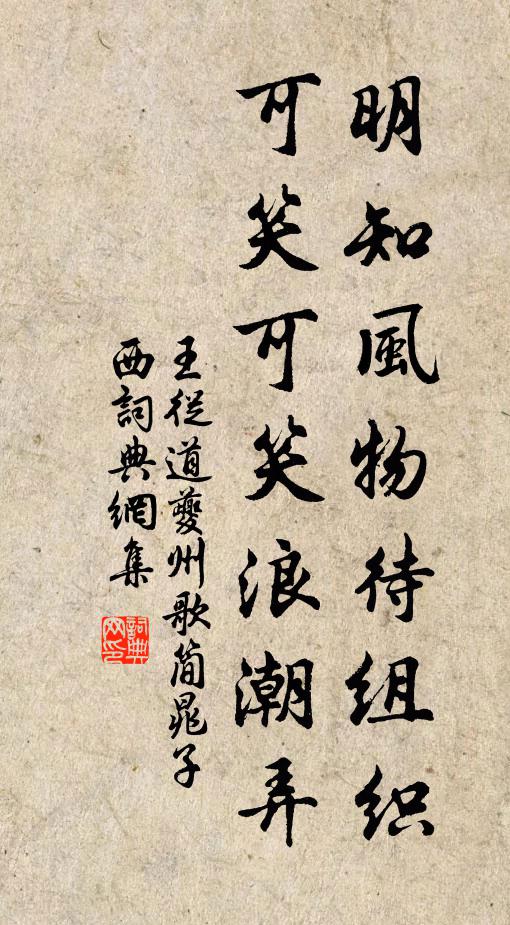 明知風物待組织
可笑可笑浪潮弄
王從道夔州歌簡晁子
西詞典網集
詞典网印